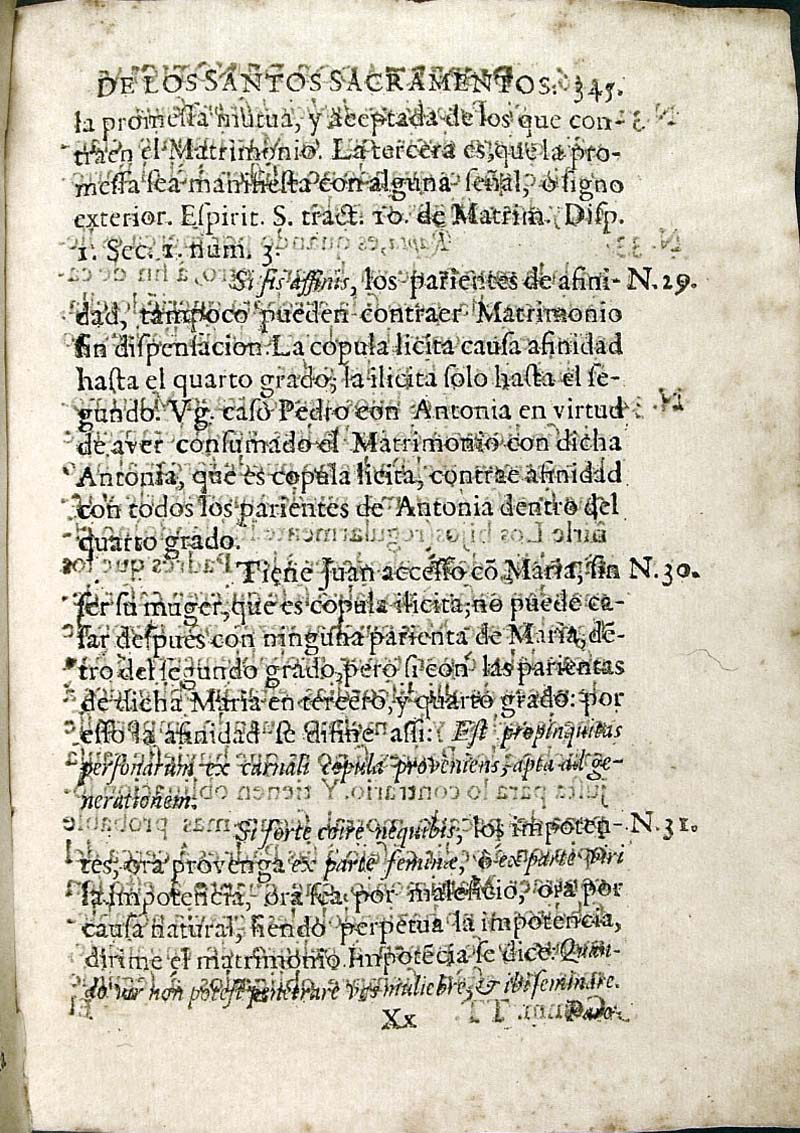 DE LOS SANTOS SACRAMENTOS. 345.
la promeſſa mutua, y aceptada de los que con-
traen el Matrimonio. La tercera es, que la pro-
meſſa ſea manifieſta con alguna ſeñal, ò ſigno
exterior. Eſpirit. S. tract. 10. de Matrim. Diſp.
1. Sec. 1. num. 3.
Si ſis affinis, los parientes de afini- N. 29.
dad, tampoco pueden contraer Matrimonio
ſin diſpenſacion. La copula licita cauſa afinidad
haſta el quarto grado; la ilicita ſolo haſta el ſe-
gundo. Vg. casò Pedro con Antonia en virtud
de aver conſumado el Matrimonio con dicha
Antonia, que es copula licita, contrae afinidad
con todos los parientes de Antonia dentro del
quarto grado.
Tiene Juan acceſſo cõ Maria, ſin N. 30.
ſer ſu muger, que es copula ilicita; no puede ca-
ſar deſpues con ninguna parienta de Maria, dẽ-
tro del ſegundo grado, pero ſi con las parientas
de dicha Maria en tercero, y quarto grado: por
eſſo la afinidad ſe difine aſſi: Eſt propinquitas
perſonarum ex carnali copula proveniens, apta ad ge-
nerationem.
Si forte coire nequibis, los impoten- N. 31.
tes, ora provenga ex parte feminæ, ò ex parte viri
la impotencia, ora ſea por maleficio, ora por
cauſa natural, ſiendo perpetua la impotencia,
dirime el matrimonio. Impotẽcia ſe dice: Quan-
do vir non poteſt penetrare vas muliebre, & ibi ſeminare.
Xx